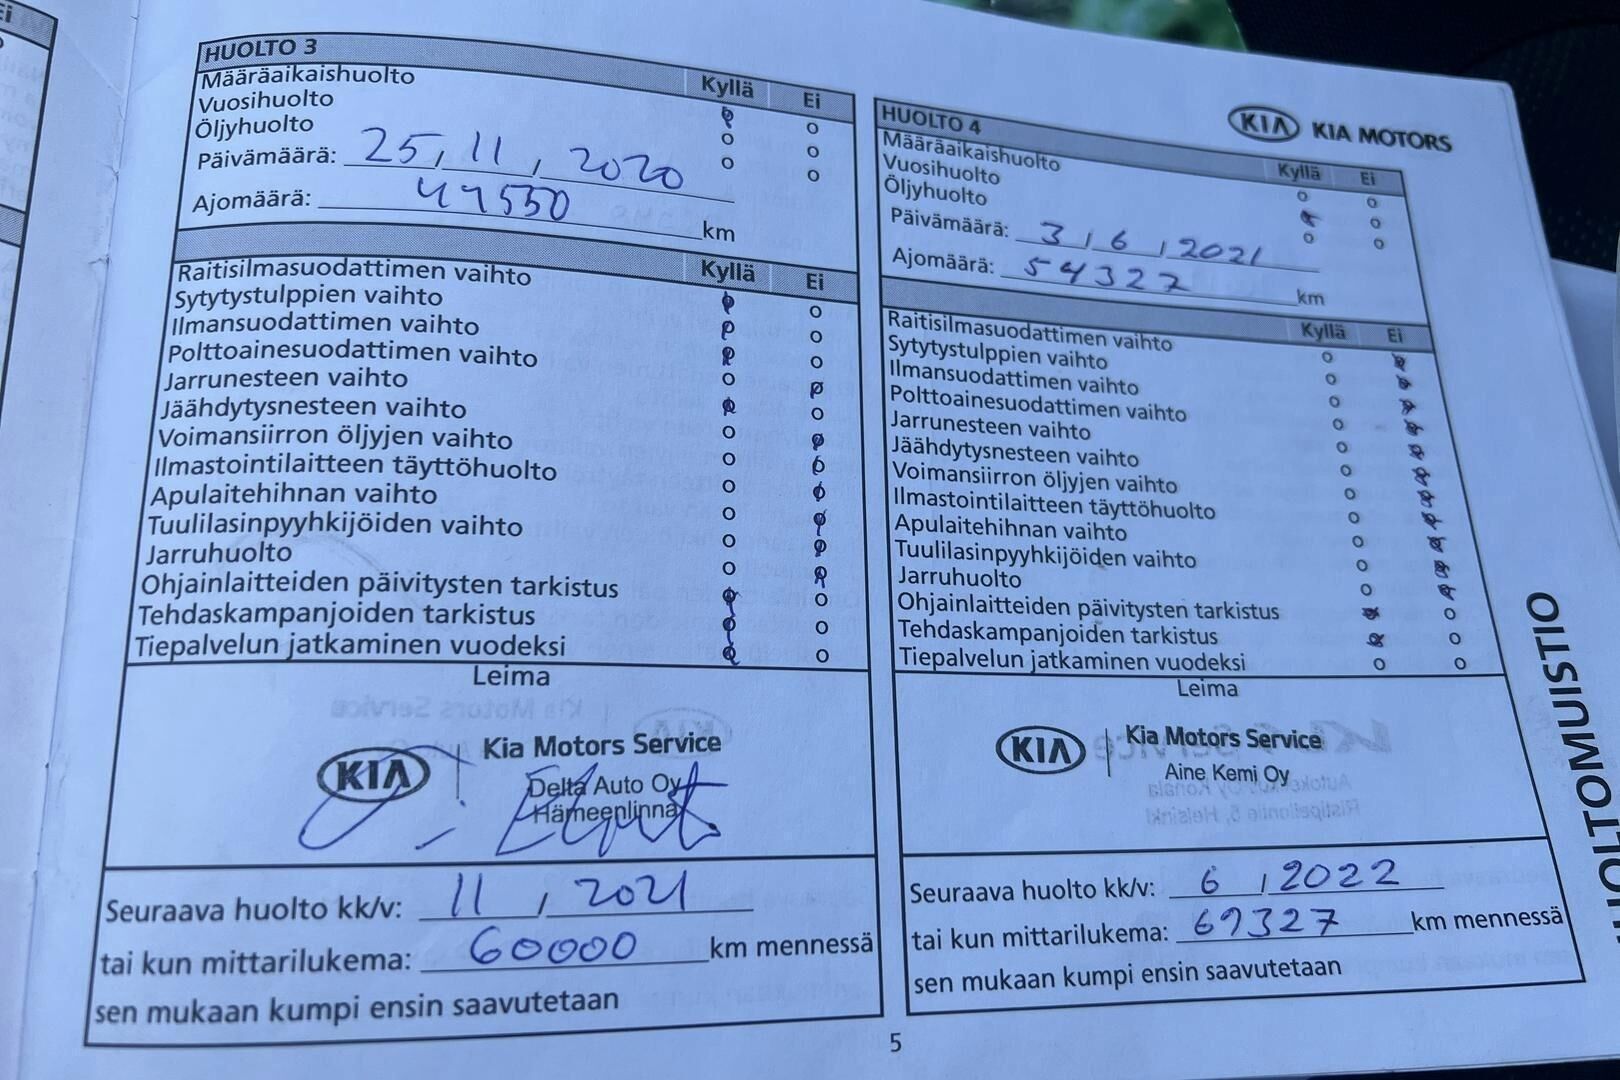 HUOLTO 3
Kyllä Ei
Määräaikaishuolto
Vuosihuolto
Öljyhuolto
Päivämäärä: 25, 11, 2020
Ajomäärä: 44550 km
Kyllä Ei
Raitisilmasuodattimen vaihto
Sytytystulppien vaihto
Ilmansuodattimen vaihto
Polttoainesuodattimen vaihto
Jarrunesteen vaihto
Jäähdytysnesteen vaihto
Voimansiirron öljyjen vaihto
Ilmastointilaitteen täyttöhuolto
Apulaitehihnan vaihto
Tuulilasinpyyhkijöiden vaihto
Jarruhuolto
Ohjainlaitteiden päivitysten tarkistus
Tehdaskampanjoiden tarkistus
Tiepalvelun jatkaminen vuodeksi
Leima
KIA Kia Motors Service
Delta Auto Oy
Hämeenlinna
Seuraava huolto kk/v: 11 / 2021
tai kun mittarilukema: 60000 km mennessä
sen mukaan kumpi ensin saavutetaan
KIA KIA MOTORS
HUOLTO 4
Kyllä Ei
Määräaikaishuolto
Vuosihuolto
Öljyhuolto
Päivämäärä: 3 / 6 / 2021
Ajomäärä: 54327 km
Kyllä Ei
Raitisilmasuodattimen vaihto
Sytytystulppien vaihto
Ilmansuodattimen vaihto
Polttoainesuodattimen vaihto
Jarrunesteen vaihto
Jäähdytysnesteen vaihto
Voimansiirron öljyjen vaihto
Ilmastointilaitteen täyttöhuolto
Apulaitehihnan vaihto
Tuulilasinpyyhkijöiden vaihto
Jarruhuolto
Ohjainlaitteiden päivitysten tarkistus
Tehdaskampanjoiden tarkistus
Tiepalvelun jatkaminen vuodeksi
Leima
KIA Kia Motors Service
Aine Kemi Oy
Seuraava huolto kk/v: 6 / 2022
tai kun mittarilukema: 69327 km mennessä
sen mukaan kumpi ensin saavutetaan
HUOLTOMUISTIO
5